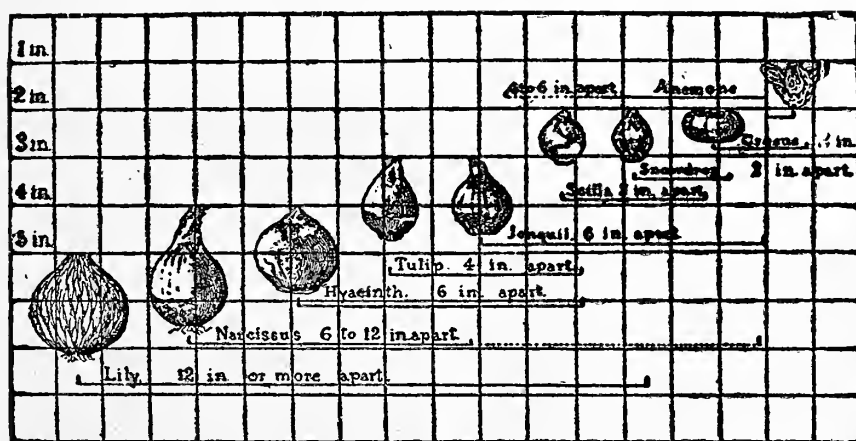 1 in.
2 in.
4 to 6 in apart Anemone
3 in.
Crocus in
Snowdrop 2 in. apart
4 in.
Scilla 2 in. apart
5 in.
Jonquil. 6 in. apart
Tulip. 4 in. apart
Hyacinth. 6 in. apart.
Narcissus 6 to 12 in. apart
Lily. 12 in. or more apart.